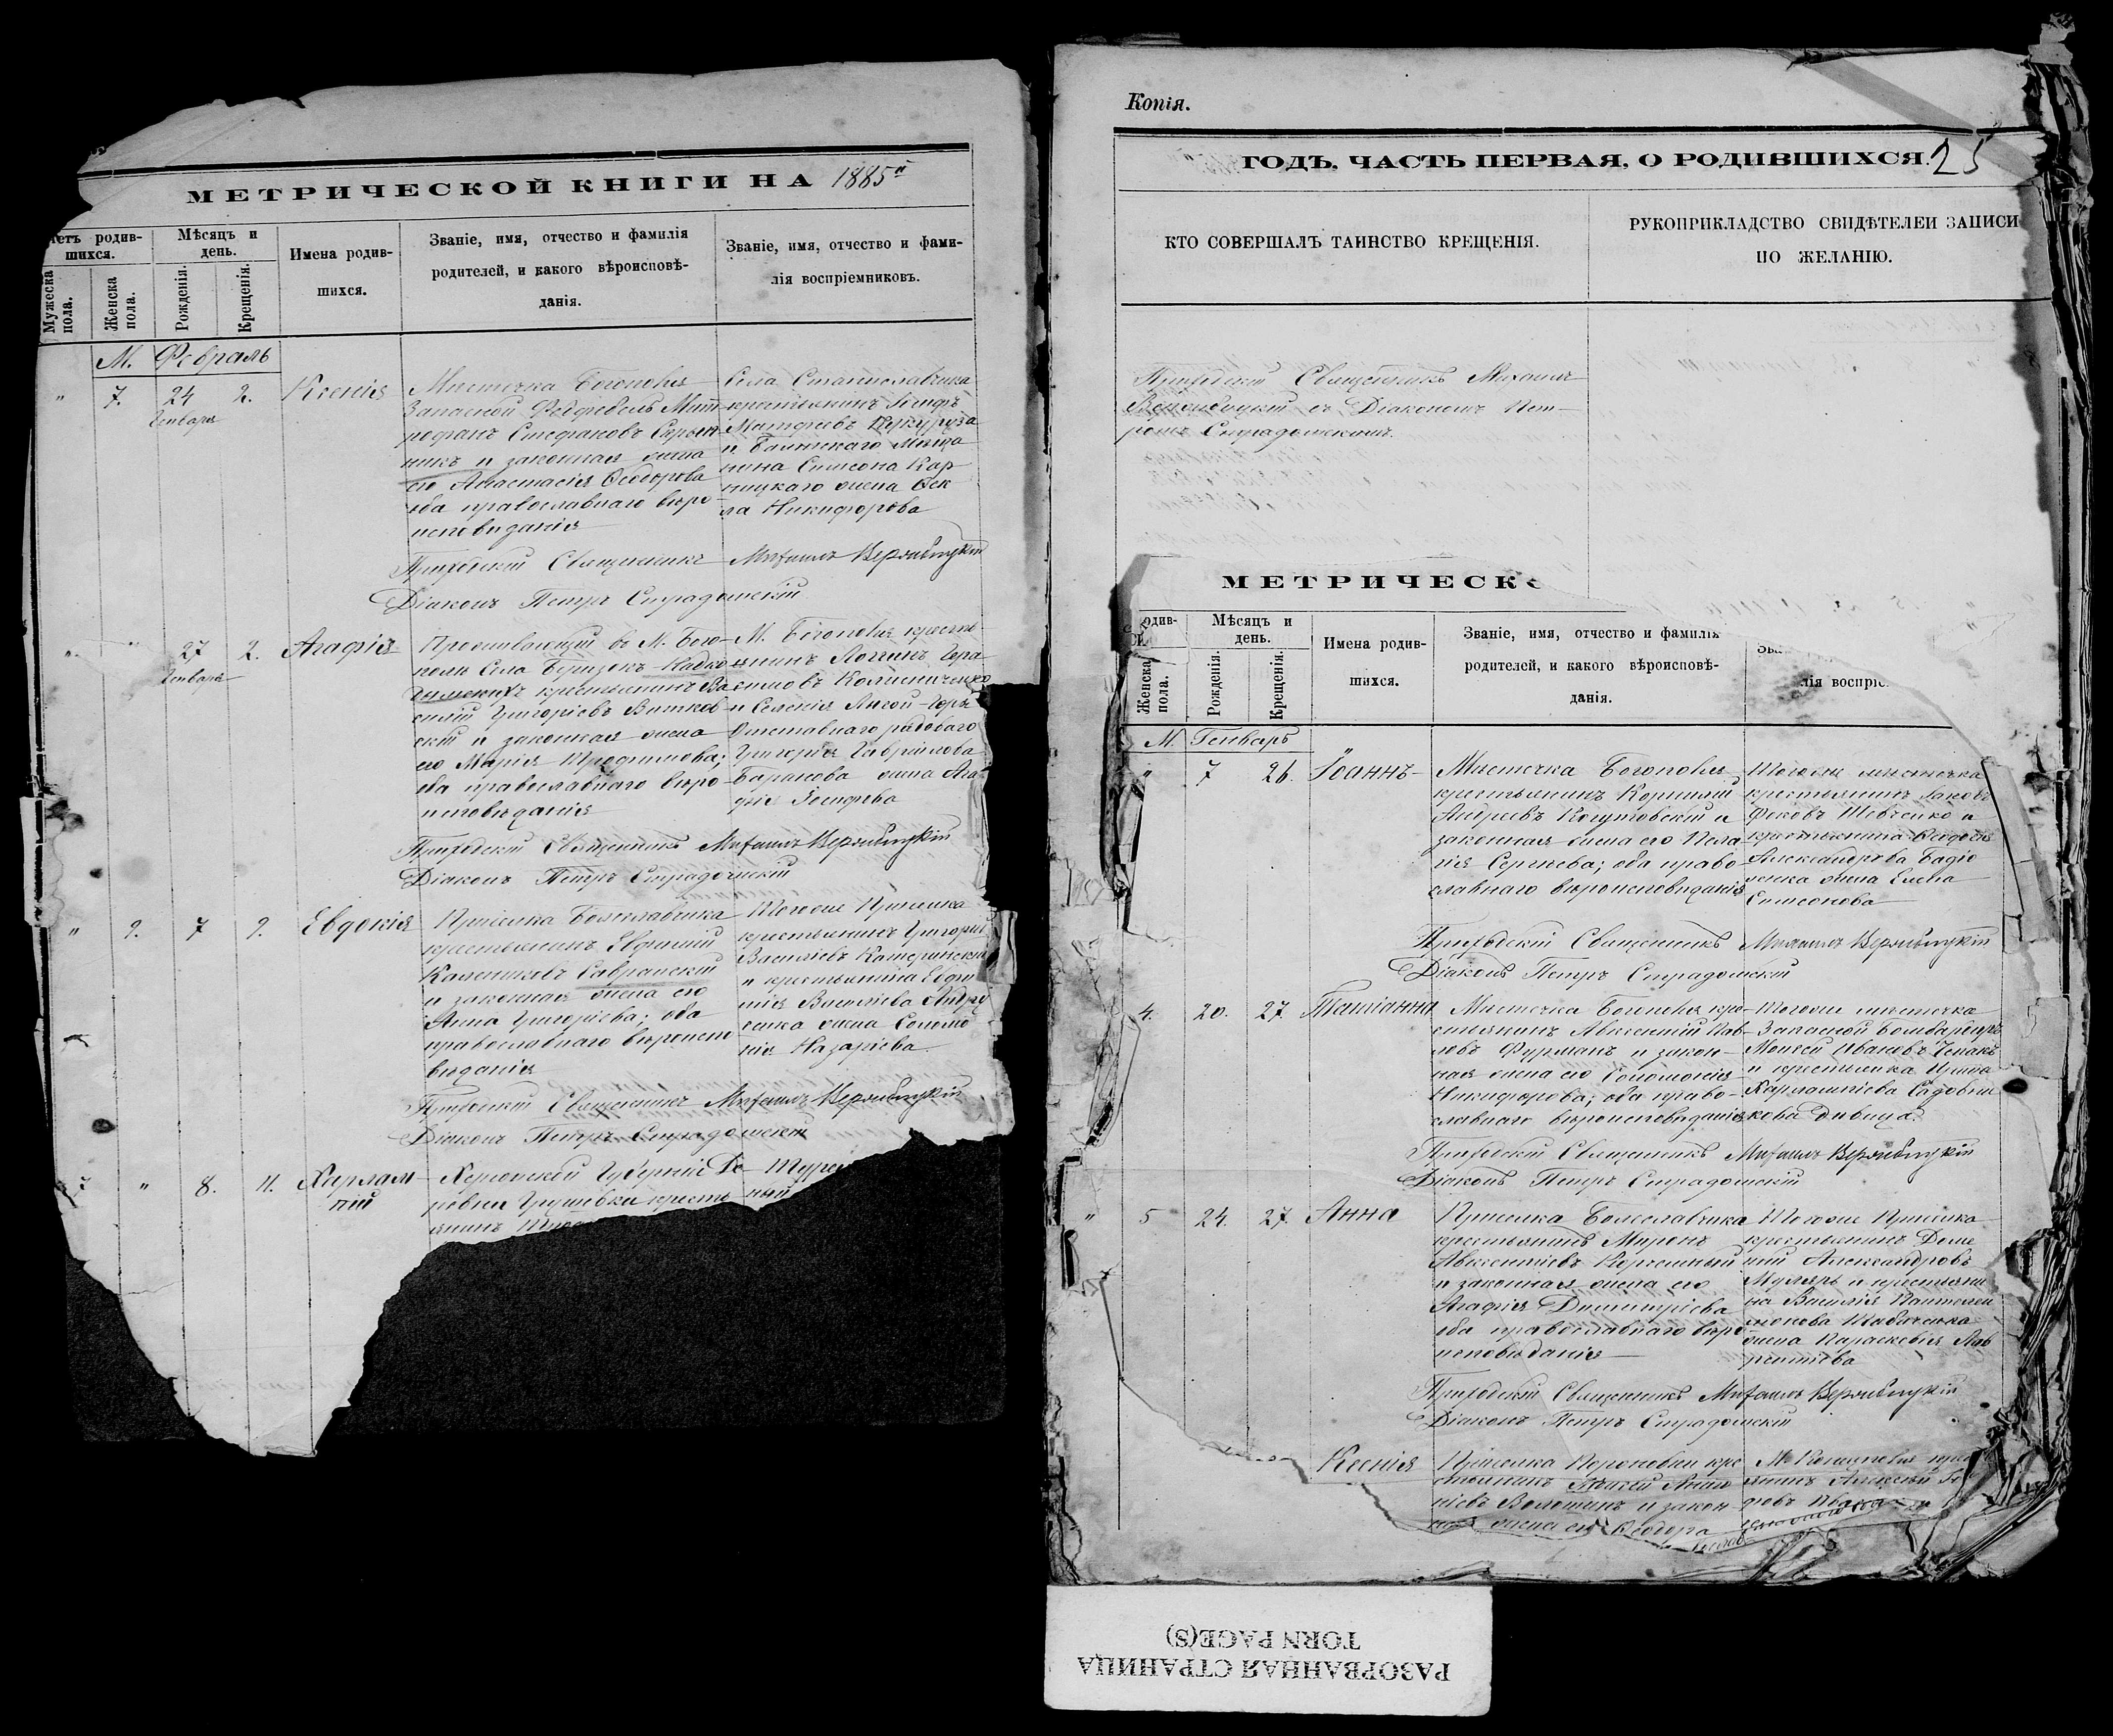 МЕТРИЧЕСКОЙ КНИГИ НА 1885й
родив-
шихся.
Мѣсяцъ и
день.
Мужеска
пола.
Женска
пола.
Рожденія.
Крещенія.
Имена родив-
шихся.
Званіе, имя, отчество и фамилія
родителей, и какого вѣроисповѣ-
данія.
Званіе, имя, отчество и фами-
лія воспріемниковъ.
М. Февраль
" 7. 24 2. Ксенія
Генваря
Мѣстечка Богополя
Запасной Фельдфебель Мит
рофанъ Стефановъ
никъ и законная жена
его Анастасія Ѳеодорова
оба православнаго вѣро-
исповѣданія
Села Станиславчика
крестьянинъ Іосифъ
Матфеевъ Кукуруза
и Балтскаго Мѣща
нина Симеона Кар
ницкаго жена Ѳек
ла Никифорова
Приходскій Священникъ Михаилъ Вержбицкій
Діаконъ Петръ Страдомскій
27 2. Агафія
Генваря
Проживающій въ М. Бого-
полѣ Села
крестьянинъ Ва
силій Григоріевъ Витков
скій и законная жена
его Марія Трофимова;
оба православнаго вѣро-
исповѣданія
М. Богополя крестья-
нинъ Логгинъ Гера
симовъ Колисниченко
и Селенія Лысой-Горы
Отставнаго рядоваго
Григорія Гавріилова
Баранова жена Ага
фія Іосифова
Приходскій Священникъ Михаилъ Вержбицкій
Діаконъ Петръ Страдомскій
" 9. 7 9. Евдокія
Приселка Болеславчика
крестьянинъ Евфимій
Калениковъ Савранскій
и законная жена его
Анна Григоріева; оба
православнаго вѣроиспо
вѣданія
Тогоже Приселка
крестьянинъ Григорій
Василіевъ Катеринскій
и крестьянина Евфи
мія Василіева Андру
сика жена Соломо
нія Назаріева.
Приходскій Священникъ Михаилъ Вержбицкій
Діаконъ Петръ Страдомскій
" 8. 11. Харлам
пій
Херсонской Губерніи Де-
ревни Грушевки кресть
янинъ
Копія.
ГОДЪ, ЧАСТЬ ПЕРВАЯ, О РОДИВШИХСЯ. 25
КТО СОВЕРШАЛЪ ТАИНСТВО КРЕЩЕНІЯ.
РУКОПРИКЛАДСТВО СВИДѢТЕЛЕЙ ЗАПИСИ
ПО ЖЕЛАНІЮ.
Приходскій Священникъ Михаилъ
Вержбицкій съ Діакономъ Пет-
ромъ Страдомскимъ.
МЕТРИЧЕСК
одив-
Мѣсяцъ и
день.
Женска
пола.
Рожденія.
Крещенія.
Имена родив-
шихся.
Званіе, имя, отчество и фамилія
родителей, и какого вѣроисповѣ-
данія.
лія воспріе
М. Генварь
" 7 26. Іоаннъ
Мѣстечка Богополя
крестьянинъ Корнилій
Андреевъ Когутовскій и
законная жена его Пела
гія Сергѣева; оба право
славнаго вѣроисповѣданія
Тогоже мѣстечка
крестьянинъ Іаковъ
Фоковъ Шевченко и
крестьянина Ѳеодосія
Александрова Бадю
жена Елена
Симеонова
Приходскій Священникъ Михаилъ Вержбицкій
Діаконъ Петръ Страдомскій
4. 20. 27. Татіанна
Мѣстечка Богополя кре-
стьянинъ Авксентій Пав-
ловъ Фурманъ и закон-
ная жена его Соломонія
Никифорова; оба право-
славнаго вѣроисповѣданія
Тогоже мѣстечка
Запасной Бомбардиръ
Моисей Ивановъ Чепакъ
и крестьянка Ирина
Харлампіева Садовни
кова дѣвица.
Приходскій Священникъ Михаилъ Вержбицкій
Діаконъ Петръ Страдомскій
" 5 24. 27. Анна
Приселка Болеславчика
крестьянинъ Миронъ
Авксентіевъ
и законная жена его
Агафія Димитріева
оба православнаго вѣро-
исповѣданія
Тогоже Приселка
крестьянинъ Доме
тій Александровъ
Муляръ и крестьяни
на Василія Пантелеи
монова
жена Параскевія Лав
рентіева
Приходскій Священникъ Михаилъ Вержбицкій
Діаконъ Петръ Страдомскій
Ксенія
Приселка кре
стьянинъ Моисей Анан
ніевъ и закон-
ная жена его Ѳеодора
М. крест
янинъ Алексѣй
РАЗОРВАННАЯ СТРАНИЦА
TORN PAGE(S)